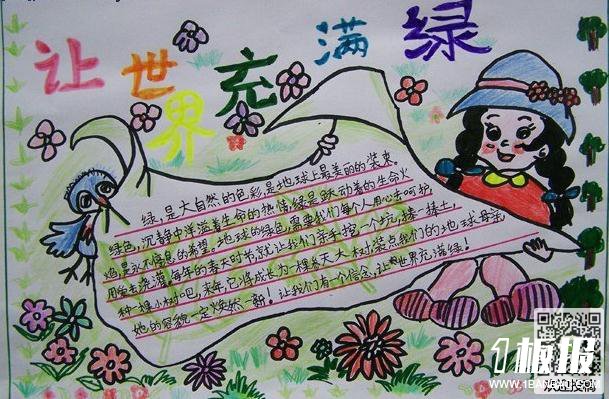 让世界充满绿
绿,是大自然的色彩,是地球上最美丽的装束。
绿色,沉静中洋溢着生命的热情,绿是跃动着的生命火
焰是永不息的希望。地球的绿色,需要我们每个人用心去呵护,
用爱去浇灌。每年的春天时节,就让我们亲手挖一个坑,捧一捧土,
种一棵小树吧,来年,它将成长为一棵参天大树,装点我们的地球母亲,
她的容貌一定焕然一新!让我们有一个信念,让世界充满绿!
1板报
WWW.1BANBAO.COM